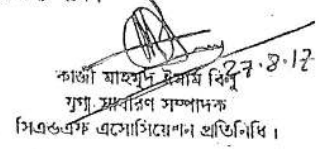 কাজী মাহমুদ ইমাম বিলু
২৭.৮.১৭
যুগ্ম সাধারণ সম্পাদক
সিএন্ডএফ এসোসিয়েশন প্রতিনিধি।